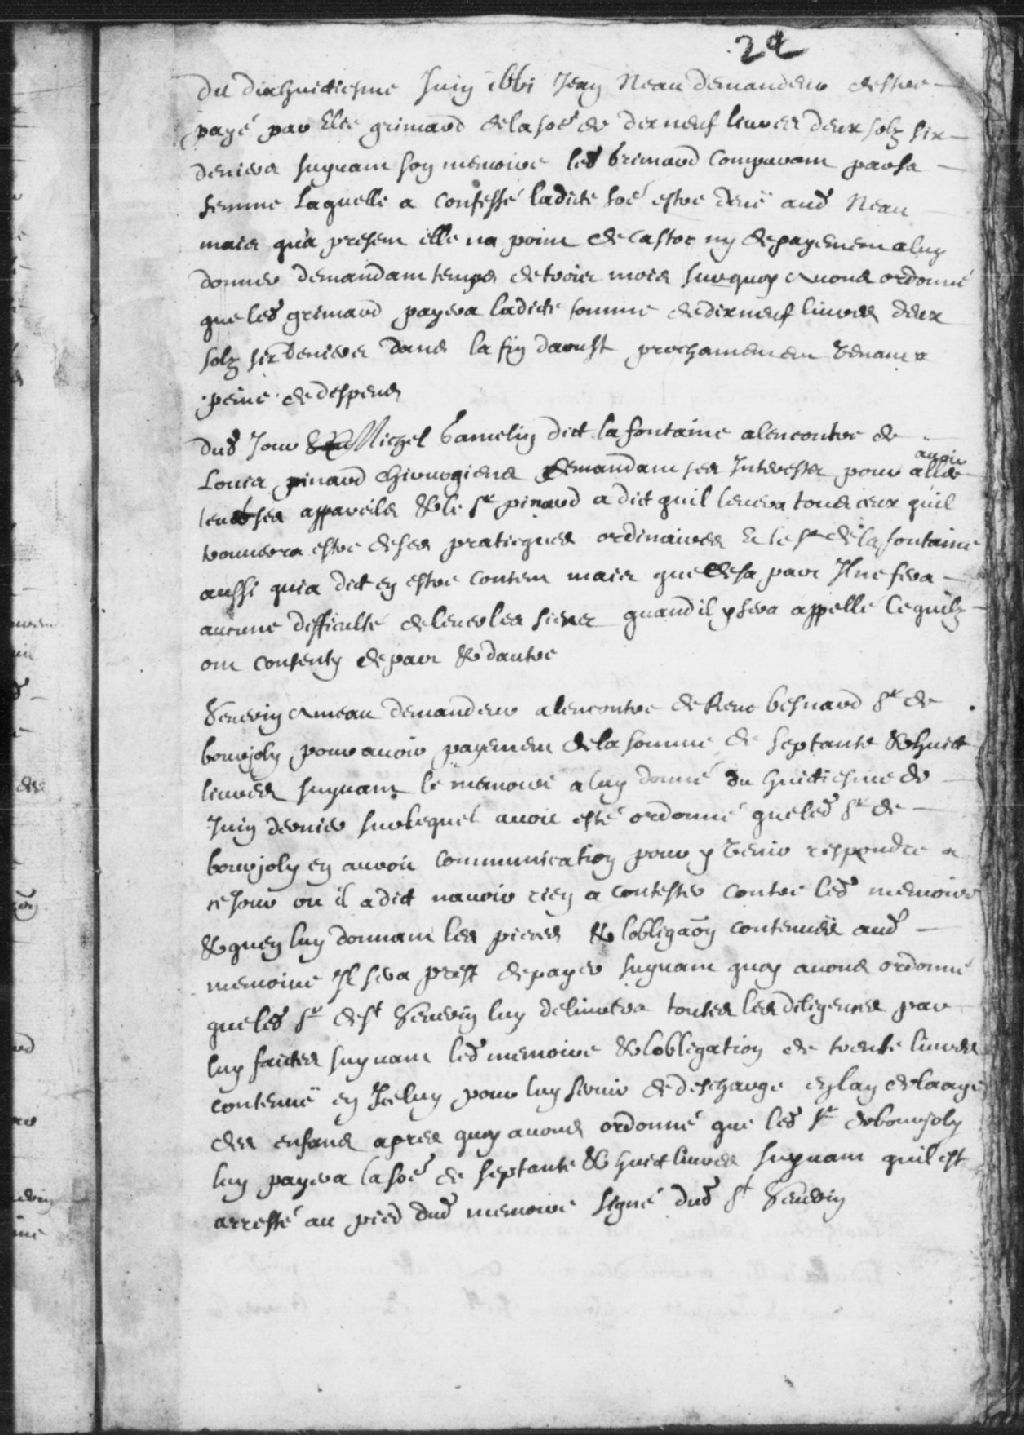 29
du dixhuictiesme Juin 1661 Jean Neau demandeur destre
payé par Elie grimard de la soe de dix neuf liures deux solz six
deniers suyuant son memoire led Grimard comparant par sa
femme Laquelle a confessé ladicte soe estre deue aud Neau
mais qua present elle na point de castor ny de payement a luy
donner demandant temps de trois mois surquoy Auons ordonné
que led grimard payera ladicte somme de dixneuf liures deux
solz six deniers dans la fin daoust prochainement venant a
peine de despens
Dud Jour Michel Gamelin dict la fontaine alencontre de
Louis pinard chirurgiens demandant ses Interests pour auoir
leué ses appareils & le sr pinard a dict quil leuera tous ceux quil
trouuera estre de ses praticques ordinaires & le sr de la fontaine
aussi qui a dict en estre content mais que de sa part Il ne fera
aucune difficulté de leuer les siens quand il y sera appellé Ce quilz
ont consenty de part & dautre
Seuerin Ameau demandeur alencontre de Rene besnard sr de
bourjoly pour auoir payement de la somme de septante & huict
liures suyuant le memoire a luy donné du huictiesme de
Juin dernier surlequel auoit esté ordonné que led sr de
bourjoly en auroit communication pour y venir respondre a
ce Jour ou il a dict nauoir rien a contester contre led memoire
& quen luy donnant les pieces & lobligaon contenues aud
memoire Il sera prest de payer suyuant quoy auons ordonné
que led sr de st Seuerin luy deliurera toutes les diligences par
luy faictes suyuant led memoire & lobligation de trente liures
contenue en Iceluy pour luy seruir de descharge en lan de laage
des enfans apres quoy auons ordonné que led sr de bourjoly
luy payera la soe de septante & huict liures suyuant quil est
arresté au pied dud memoire signé dud st Seuerin